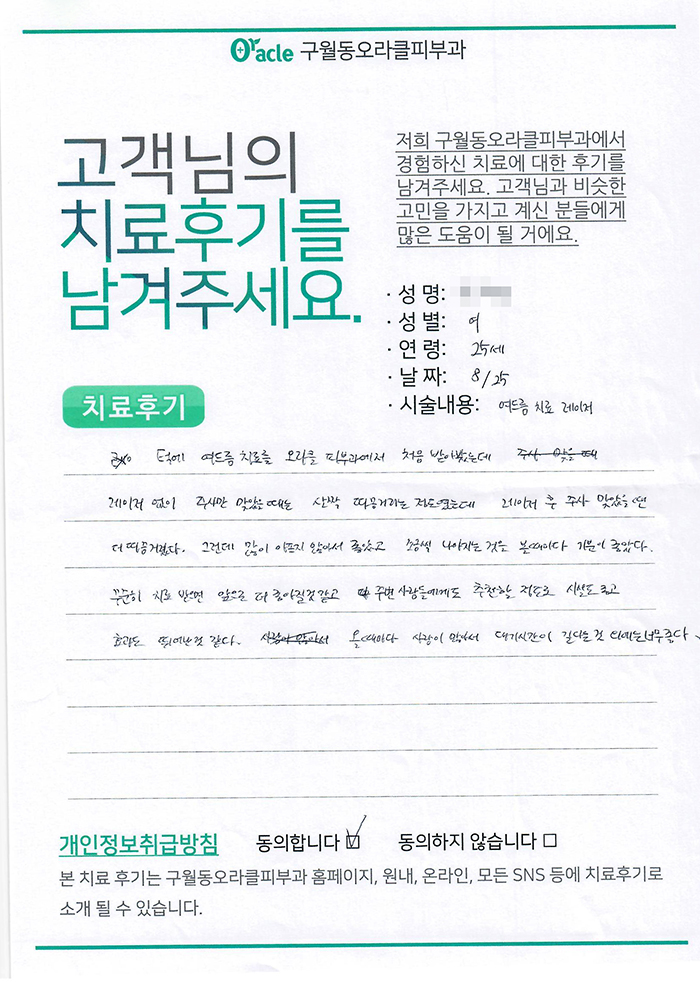 Oracle 구월동오라클피부과
고객님의
치료후기를
남겨주세요.
저희 구월동오라클피부과에서
경험하신 치료에 대한 후기를
남겨주세요. 고객님과 비슷한
고민을 가지고 계신 분들에게
많은 도움이 될 거에요.
· 성 명:
· 성 별: 여
· 연 령: 25세
· 날 짜: 8/25
· 시술내용: 여드름 치료 레이저
치료후기
턱에 여드름 치료를 오라클 피부과에서 처음 받아봤는데 주사 맞을 때
레이저 없이 주사만 맞았을 때는 살짝 따끔거리는 정도였는데 레이저 후 주사 맞았을 땐
더 따끔거렸다. 그런데 많이 아프지 않아서 좋았고 조금씩 나아지는 것을 볼때마다 기분이 좋았다.
꾸준히 치료 받으면 앞으로 더 좋아질것 같고 주변 사람들에게도 추천할 정도로 시설도 좋고
효과도 뛰어난것 같다. 올때마다 사람이 많아서 대기시간이 길다는 것 외에는 너무 좋다
개인정보취급방침 동의합니다 ☑ 동의하지 않습니다 □
본 치료 후기는 구월동오라클피부과 홈페이지, 원내, 온라인, 모든 SNS 등에 치료후기로
소개 될 수 있습니다.